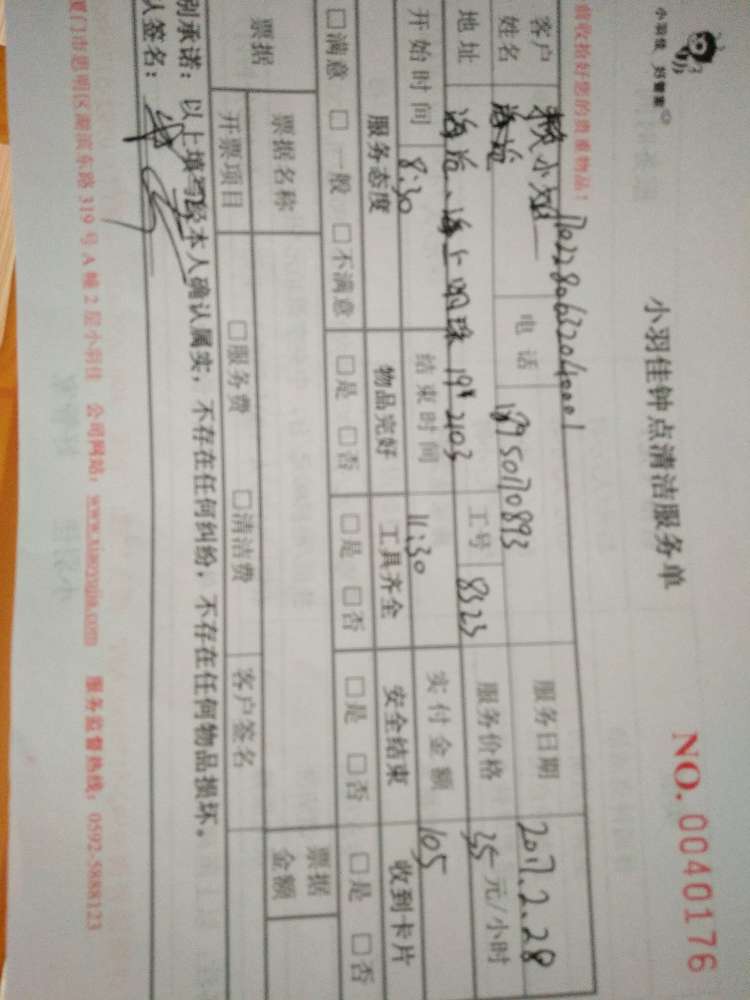 小羽佳 好管家
小羽佳钟点清洁服务单
NO. 0040176
前收拾好您的贵重物品!
客户姓名 小 电话 服务日期 2017.2.28
地址 海沧、海上明珠 19# 2103 工号 8323 服务价格 35元/小时
开始时间 8:30 结束时间 11:30 实付金额 105
服务态度 物品完好 工具齐全 安全结束 收到卡片
□满意 □一般 □不满意 □是 □否 □是 □否 □是 □否 □是 □否
票据 票据名称 票据金额
开票项目 □服务费 □清洁费 客户签名
别承诺:以上填写经本人确认属实,不存在任何纠纷,不存在任何物品损坏。
人签名:
厦门市思明区湖滨东路319号A幢2层小羽佳 公司网站:www.xiaoyujia.com 服务监督热线:0592-5888123